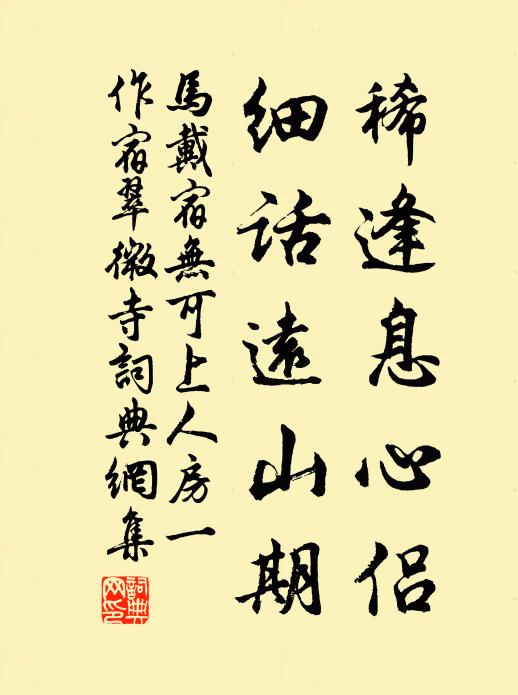 稀逢息心侣
细话遠山期
馬戴宿無可上人房一
作宿翠微寺詞典網集